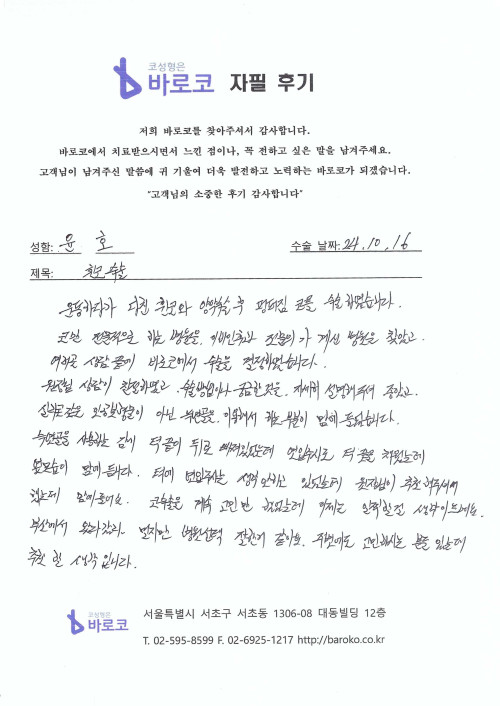 코성형은
바로코 자필 후기
저희 바로코를 찾아주셔서 감사합니다.
바로코에서 치료받으시면서 느낀 점이나, 꼭 전하고 싶은 말을 남겨주세요.
고객님이 남겨주신 말씀에 귀 기울여 더욱 발전하고 노력하는 바로코가 되겠습니다.
"고객님의 소중한 후기 감사합니다"
성함: 윤 호 수술 날짜: 24.10.16
제목: 휜코 수술
운동하다가 다친 휜코와 양악수술 후 퍼진 코를 수술하였습니다.
코만 전문적으로 하는 병원을, 이비인후과 전문의가 계신 병원을 찾았고.
여러곳 상담 끝에 바로코에서 수술을 결정하였습니다.
원장님 상담이 친절하였고. 수술방법이나 궁금한 것을, 자세히 설명해주셔 좋았고.
실리콘같은 인공보형물이 아닌 늑연골을, 이용해서 하는 부분이 맘에 들었습니다.
늑연골을 사용하는 김에 턱끝이 뒤로 빠져있었는데 턱끝을 채웠는데
옆모습이 맘에 듭니다. 생각 안하고 있었는데 원장님이 추천해주셔서
했는데 맘에 들어요. 계속 고민만 하였는데 이제는 잘했단 생각이 드네요.
부산에서 왔다갔다. 멀지만 병원선택 잘한거 같아요. 주변에도 고민하시는 분들 있는데
추천 할 생각입니다.
코성형은
바로코
서울특별시 서초구 서초동 1306-08 대동빌딩 12층
T. 02-595-8599 F. 02-6925-1217 http://baroko.co.kr